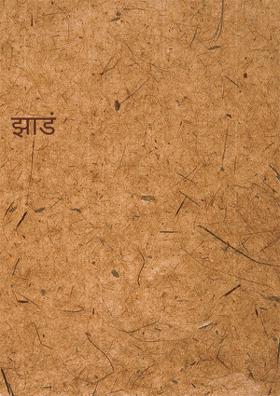 झाडं